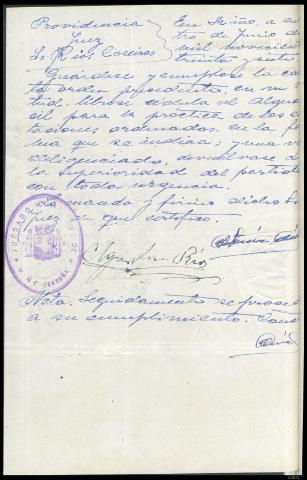 Providencia
Juez
Sr. Rios Caseiros
En Miño, a cua
tro de Junio de
mil novecien
treinta y siete
Guárdese y cumplase la ca
ta orden precedente, en su vir
tud librese cédula al Algua
cil para la práctica de las ci
taciones ordenadas en la for
ma que se indica; y una vez
diligenciado, devuélvase a
la Superioridad del partido
con toda urgencia.
Lo mandó y firma dicho Sr
Juez de que certifico.
JUZGADO
Rios
Nota. Seguidamente se proced
a su cumplimiento. Cons